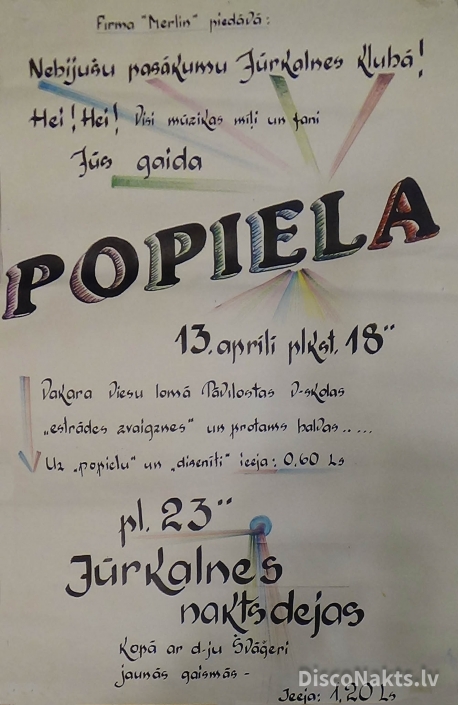 Firma "Merlin" piedāvā:
Nebijušu pasākumu Jūrkalnes klubā!
Hei! Hei! Visi mūzikas mīļi un fani
Jūs gaida
POPIELA
13. aprīlī plkst. 18°°
Vakara viesu lomā Pāvilostas v-skolas
„estrādes zvaigznes" un protams balvas.....
Uz „popielu" un „disenīti" ieeja: 0,60 Ls
pl. 23°°
Jūrkalnes
nakts dejas
Kopā ar d-ju Švāģeri
jaunās gaismās -
Ieeja: 1,20 Ls
DiscoNakts.lv